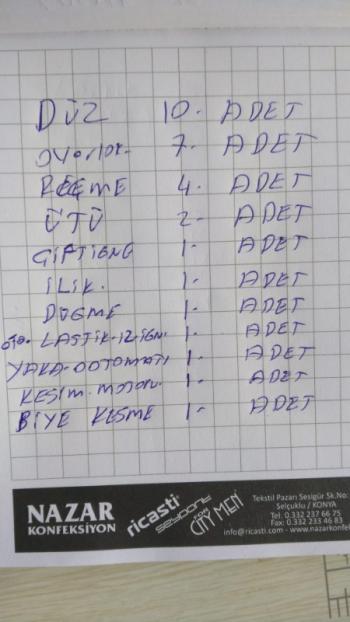 DÜZ 10- ADET
OVORLOK- 7- ADET
REÇME 4- ADET
ÜTÜ 2- ADET
ÇİFTİĞNE 1- ADET
İLİK. 1- ADET
DÜĞME 1- ADET
LASTİK-12-İĞN. 1- ADET
YAKA-OOTOMATI 1- ADET
KESİM.MOTORU. 1- ADET
BİYE KESME 1- ADET
NAZAR
KONFEKSİYON
ricasti
CITY MEN
Tekstil Pazarı Sesigür Sk.No:
Selçuklu / KONYA
Tel: 0.332 237 66 75
Fax: 0.332 233 46 83
info@ricasti.com - www.nazarkonfe